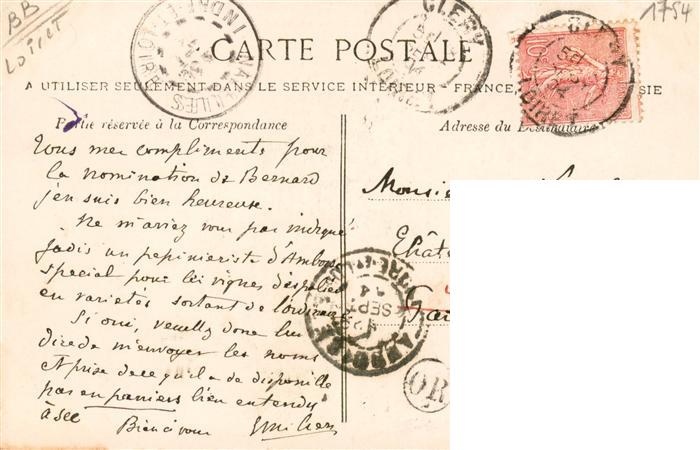 BB
Loiret
1754
CARTE POSTALE
A UTILISER SEULEMENT DANS LE SERVICE INTÉRIEUR - FRANCE, SIE
Partie réservée à la Correspondance
Adresse du Destinataire
CLERY
INDRE-ET-LOIRE
10
Tous mes compliments pour
la nomination de Bernard
j'en suis bien heureuse.
Ne m'aviez vous pas indiqué
jadis un pepinieriste d'Amboise
special pour les vignes d'espalier
en varietes sortant de l'ordinaire
Si oui, veuillez donc lui
dire de m'envoyer les noms
et prise de ce qu'il a de disponible
pas en paniers bien entendu
à sec
Bien à vous
Monsie
Chât
SEPT
OR